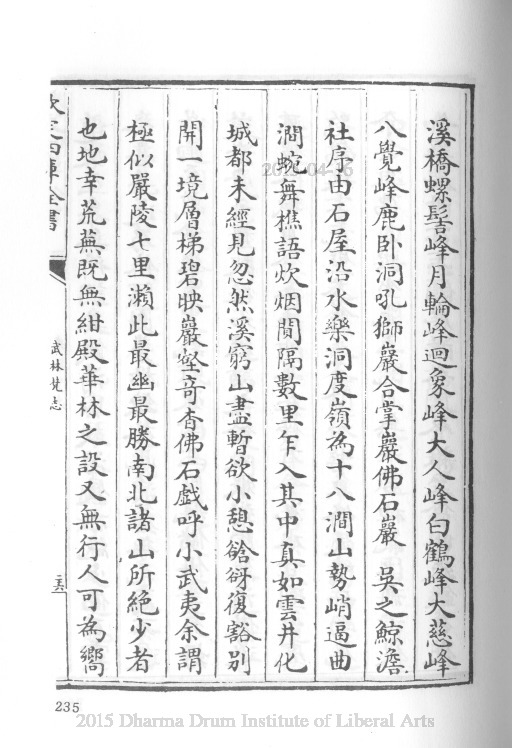 溪橋螺髻峰月輪峰迴象峰大人峰白鶴峰大慈峰
八覺峰鹿卧洞吼獅巖合掌巖佛石巖　吳之鯨澹
社序由石屋沿水樂洞度嶺為十八澗山勢峭逼曲
澗蜿舞樵語炊烟間隔數里乍入其中真如雲井化
城都未經見忽然溪窮山盡暫欲小憩谽谺復豁别
開一境層梯碧映巖壑竒杳佛石戲呼小武夷余謂
極似嚴陵七里瀨此最幽最勝南北諸山所絶少者
也地幸荒蕪既無紺殿華林之設又無行人可為嚮
欽定四庫全書
武林梵志
二六
235
2021-04-16
2015 Dharma Drum Institute of Liberal Arts